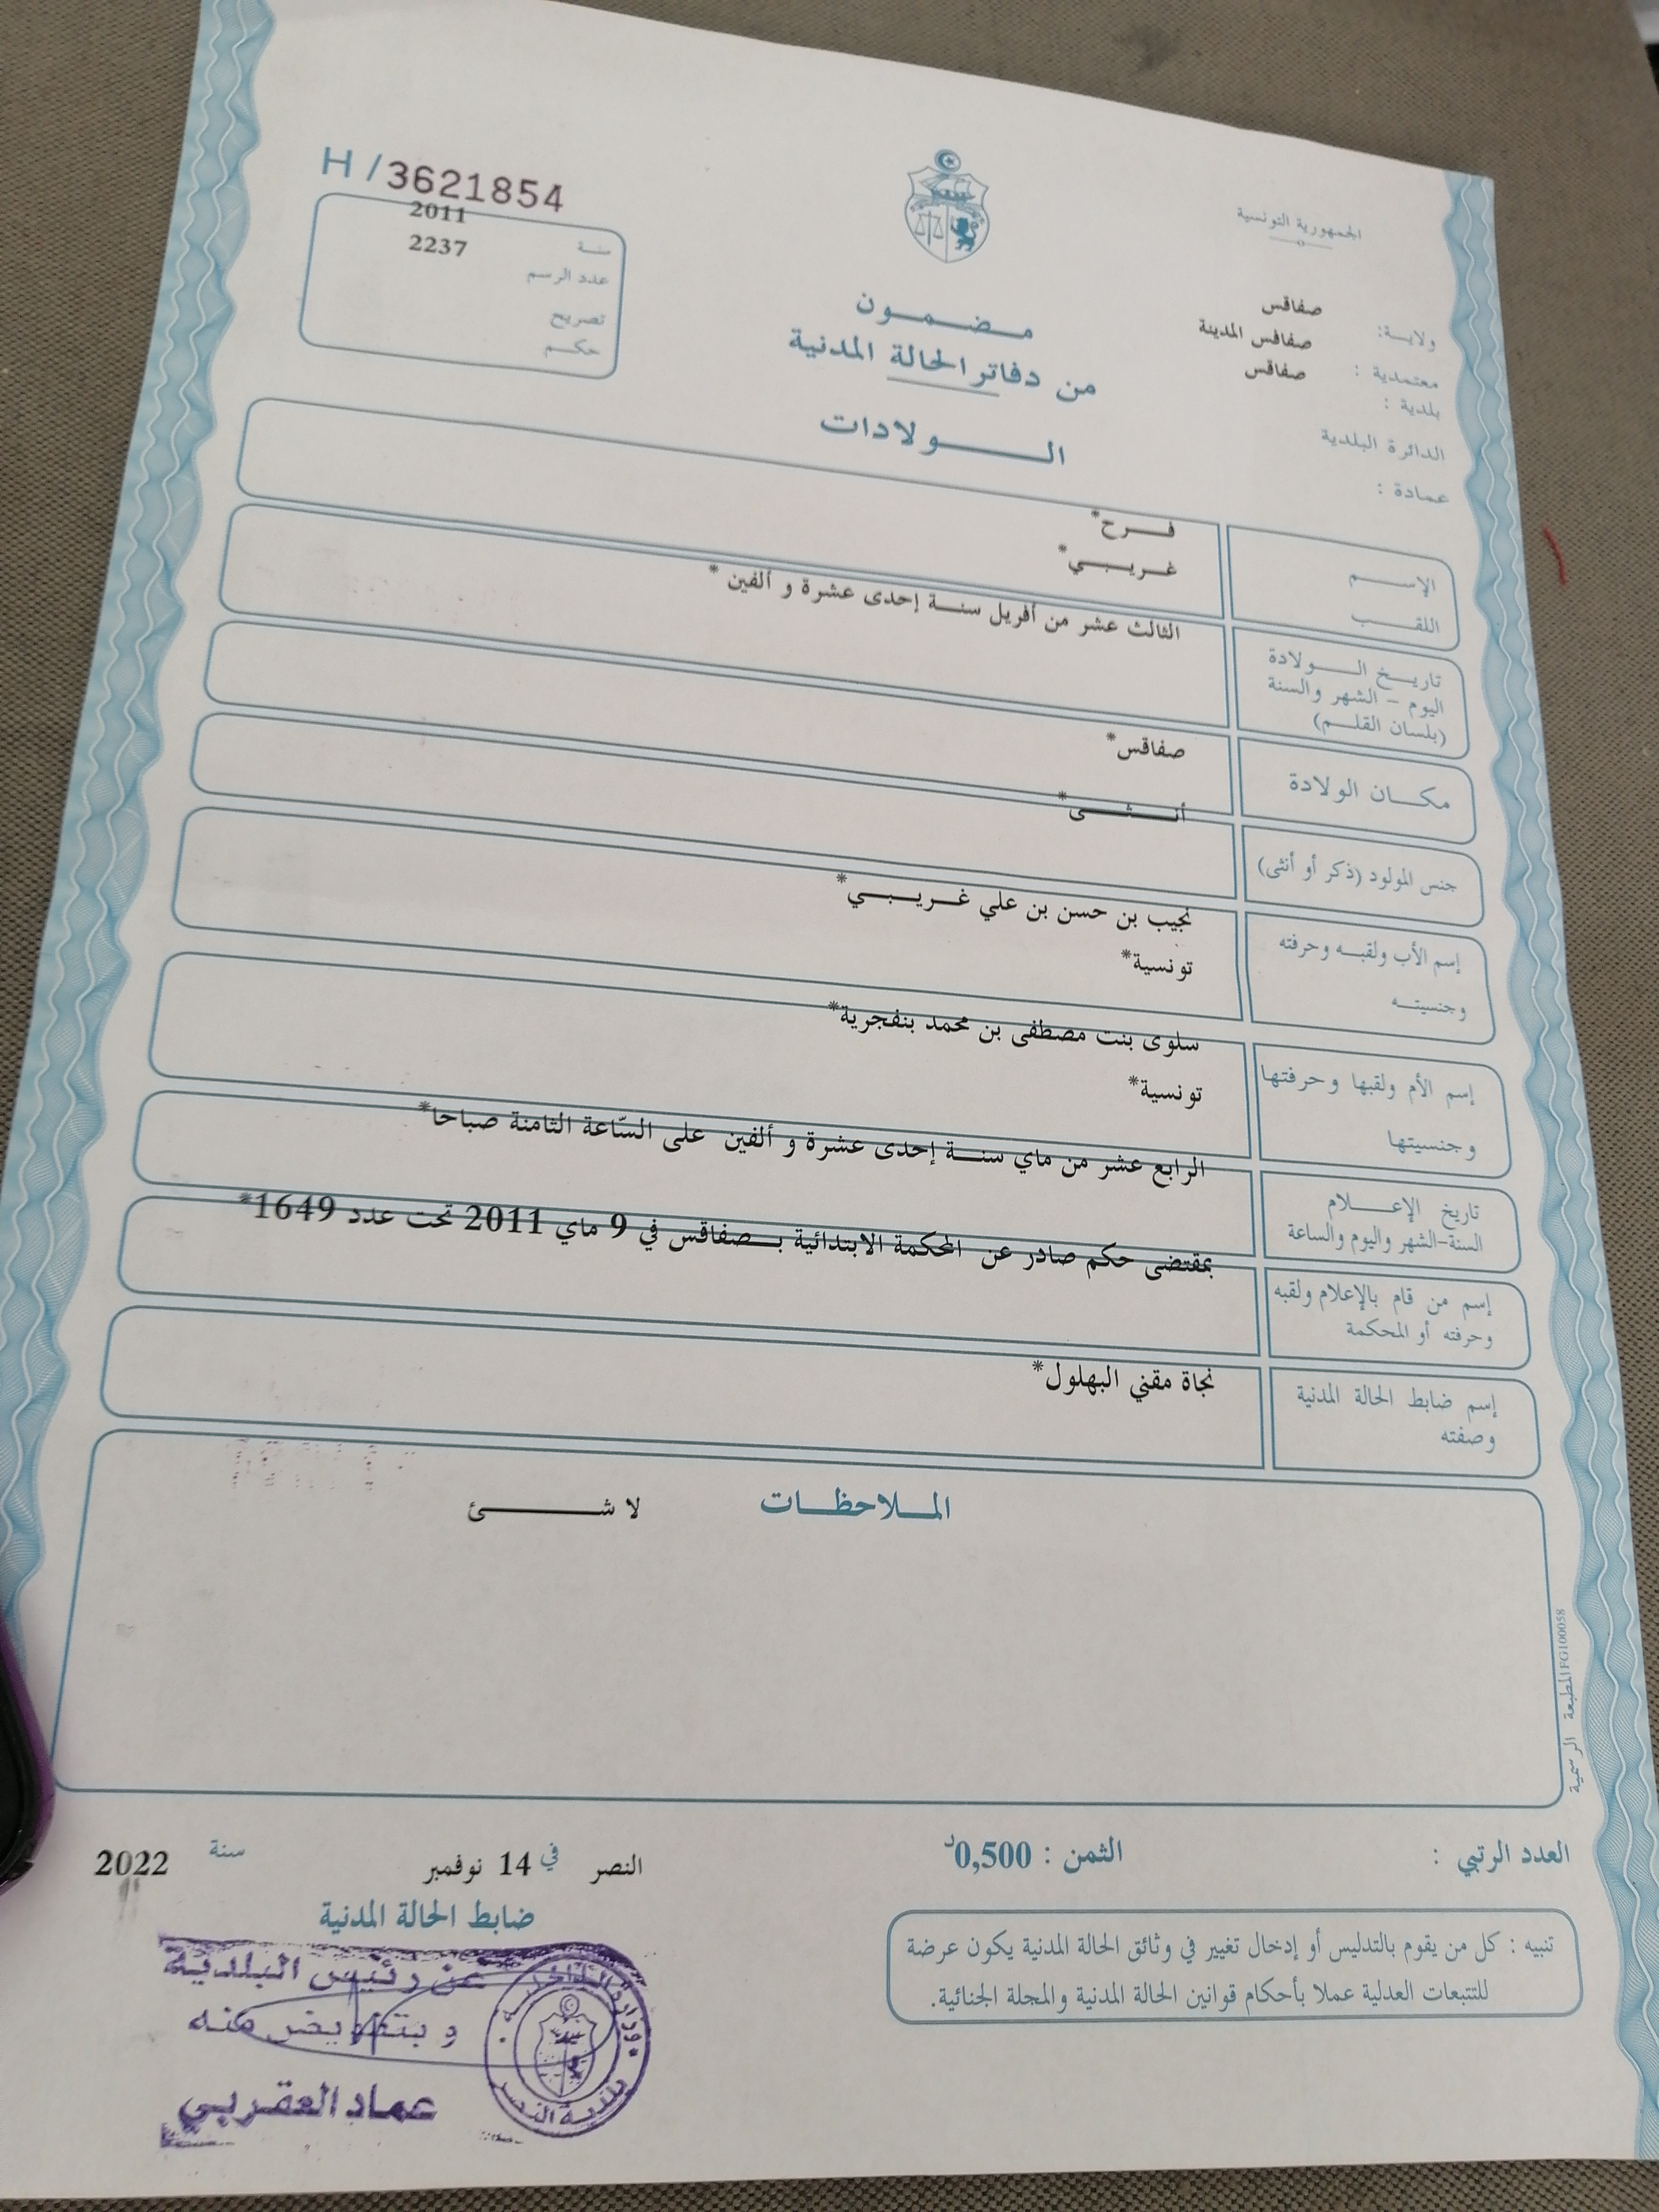 الجمهورية التونسية
H / 3621854
سنة 2011
عدد الرسم 2237
تصريح
حكم
ولاية: صفاقس
معتمدية : صفاقس المدينة
بلدية : صفاقس
الدائرة البلدية
عمادة :
مضمون
من دفاتر الحالة المدنية
الولادات
الإسم فرح*
اللقب غريبي*
تاريخ الولادة
اليوم - الشهر والسنة
(بلسان القلم)
الثالث عشر من أفريل سنة إحدى عشرة و ألفين *
مكان الولادة صفاقس*
جنس المولود (ذكر أو أنثى) أنثى*
إسم الأب ولقبه وحرفته نجيب بن حسن بن علي غريبي*
وجنسيته تونسية*
إسم الأم ولقبها وحرفتها سلوى بنت مصطفى بن محمد بنفجرية*
وجنسيتها تونسية*
تاريخ الإعلام
السنة-الشهر واليوم والساعة
الرابع عشر من ماي سنة إحدى عشرة و ألفين على السّاعة الثامنة صباحا*
إسم من قام بالإعلام ولقبه
وحرفته أو المحكمة
بمقتضى حكم صادر عن المحكمة الابتدائية بصفاقس في 9 ماي 2011 تحت عدد 1649*
إسم ضابط الحالة المدنية
وصفته
نجاة مقني البهلول*
الملاحظات لا شئ
المطبعة الرسمية FG100058
العدد الرتبي :
الثمن : 0,500د
النصر في 14 نوفمبر سنة 2022
ضابط الحالة المدنية
تنبيه : كل من يقوم بالتدليس أو إدخال تغيير في وثائق الحالة المدنية يكون عرضة
للتتبعات العدلية عملا بأحكام قوانين الحالة المدنية والمجلة الجنائية.
عن رئيس البلدية
وبتفويض منه
عماد العقربي
وزارة الداخلية
بلدية النصر